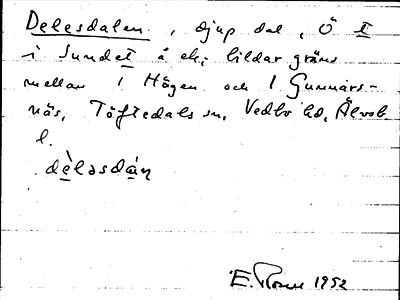 Delesdalen, djup dal, Ö I
i Sundet å ek; bildar gräns
mellan 1 Högen och 1 Gunnars-
näs, Töftedals sn, Vedbo hd, Älvsb
l.
dèləsdán
E. 1952